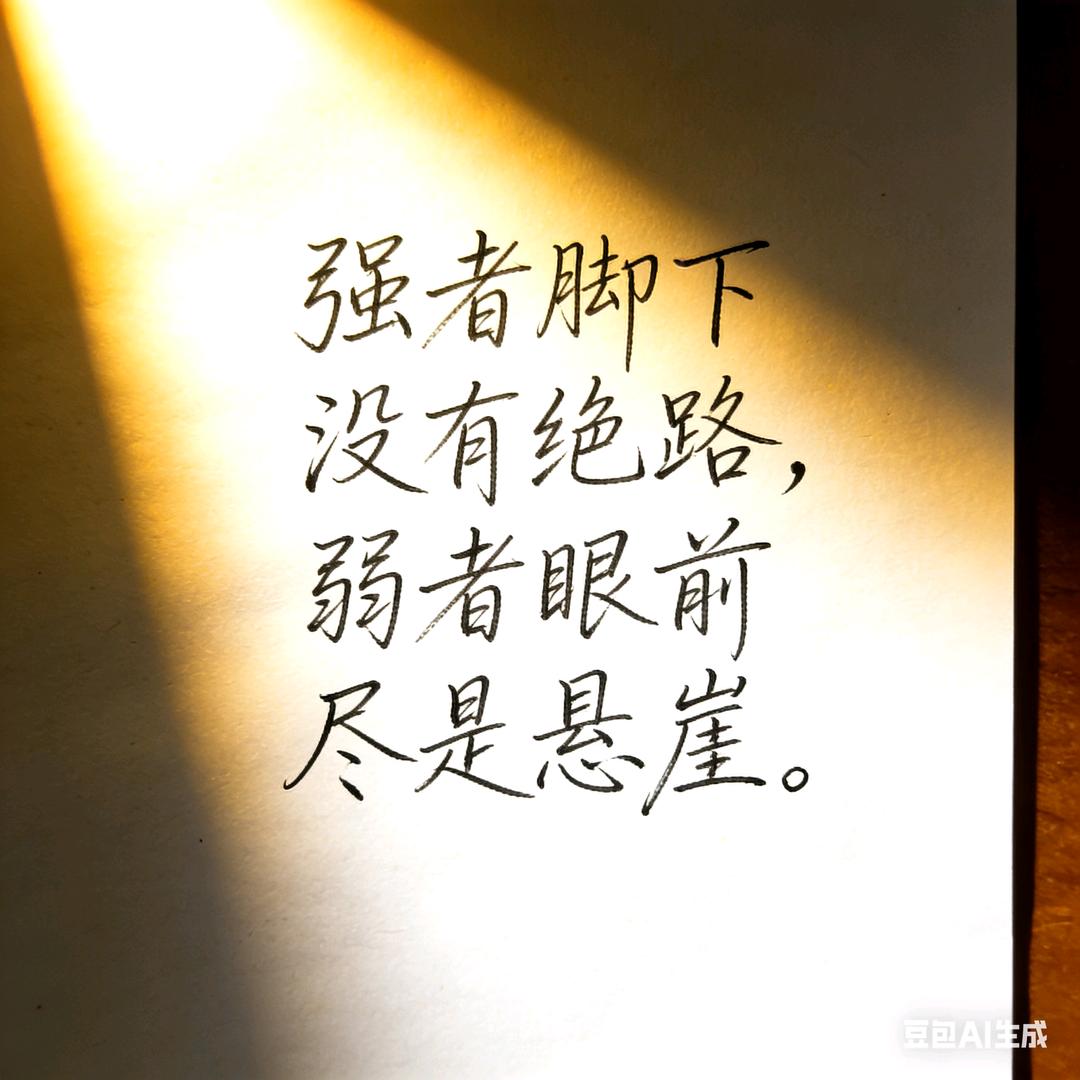 强者脚下
没有绝路，
弱者眼前
尽是悬崖。
豆包AI生成